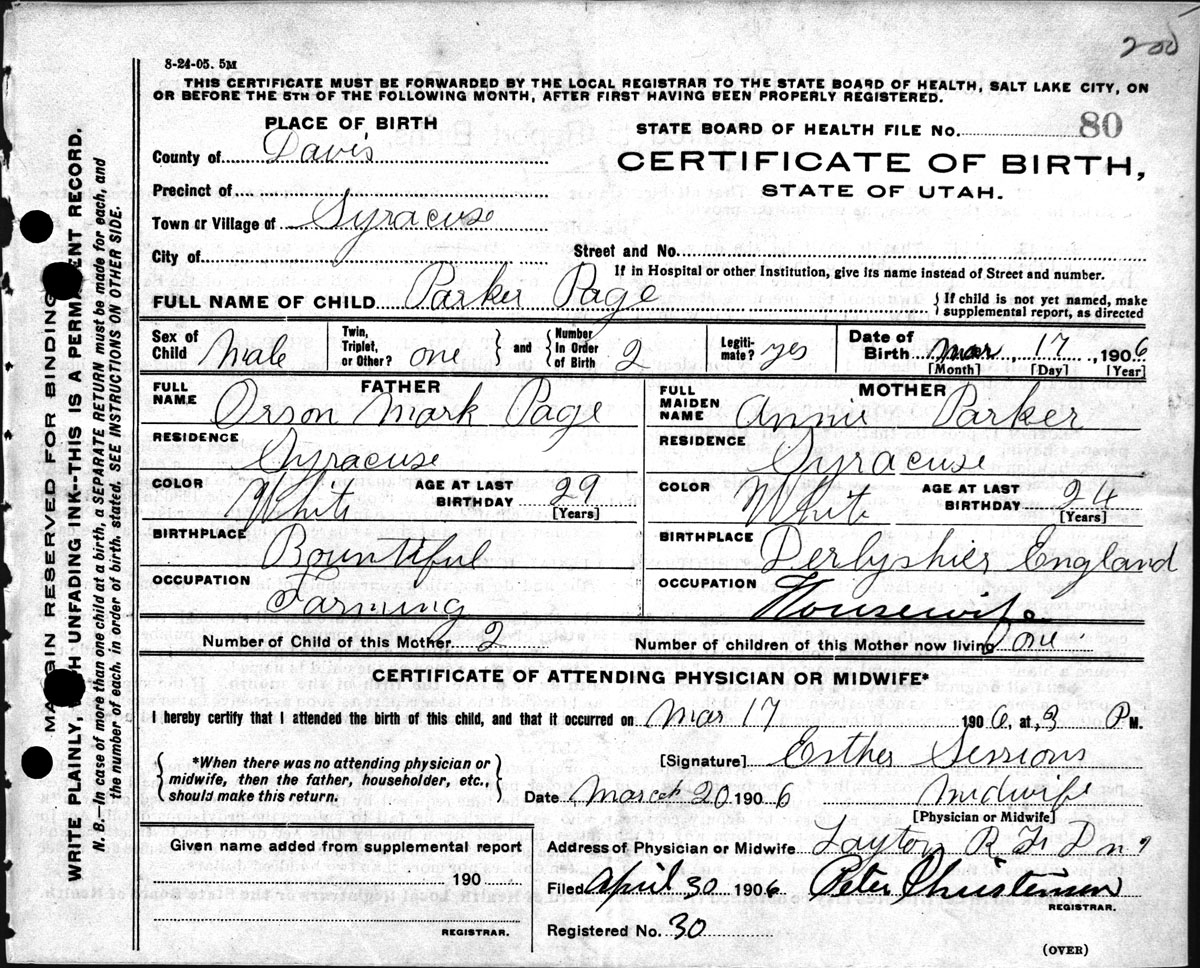 200
8-24-05. 5M
THIS CERTIFICATE MUST BE FORWARDED BY THE LOCAL REGISTRAR TO THE STATE BOARD OF HEALTH, SALT LAKE CITY, ON
OR BEFORE THE 5TH OF THE FOLLOWING MONTH, AFTER FIRST HAVING BEEN PROPERLY REGISTERED.
PLACE OF BIRTH
County of Davis
Precinct of
Town or Village of Syracuse
City of
STATE BOARD OF HEALTH FILE No. 80
CERTIFICATE OF BIRTH,
STATE OF UTAH.
Street and No.
If in Hospital or other Institution, give its name instead of Street and number.
FULL NAME OF CHILD Parker Page { If child is not yet named, make
supplemental report, as directed
Sex of Child Male
Twin, Triplet, or Other? one } and { Number In Order of Birth 2
Legiti-mate? yes
Date of Birth Mar, 17, 1906
[Month] [Day] [Year]
FATHER
FULL NAME Orson Mark Page
RESIDENCE Syracuse
COLOR White AGE AT LAST BIRTHDAY 29
[Years]
BIRTHPLACE Bountiful
OCCUPATION Farming
MOTHER
FULL MAIDEN NAME Annie Parker
RESIDENCE Syracuse
COLOR White AGE AT LAST BIRTHDAY 24
[Years]
BIRTHPLACE Derbyshier England
OCCUPATION Housewife
Number of Child of this Mother 2 Number of children of this Mother now living one
CERTIFICATE OF ATTENDING PHYSICIAN OR MIDWIFE*
I hereby certify that I attended the birth of this child, and that it occurred on Mar 17 1906, at 3 P M.
{ *When there was no attending physician or
midwife, then the father, householder, etc.,
should make this return. }
[Signature] Esther Sessions
Date March 20 1906 Midwife
[Physician or Midwife]
Given name added from supplemental report
190
REGISTRAR.
Address of Physician or Midwife Layton R F D
Filed April 30 1906 Peter Christensen
REGISTRAR.
Registered No. 30
(OVER)
MARGIN RESERVED FOR BINDING
WRITE PLAINLY, WITH UNFADING INK--THIS IS A PERMANENT RECORD.
N. B.—In case of more than one child at a birth, a SEPARATE RETURN must be made for each, and
the number of each, in order of birth, stated. SEE INSTRUCTIONS ON OTHER SIDE.